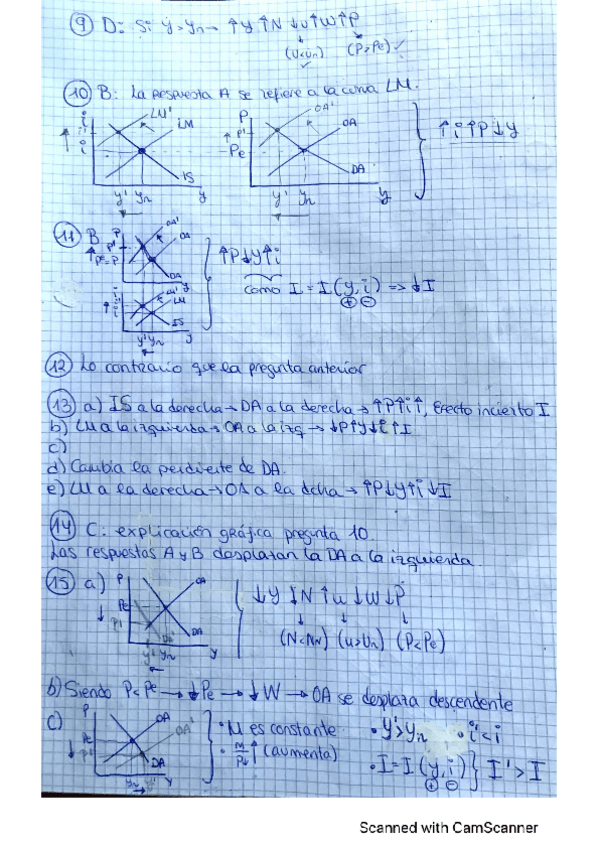 ⑨ D: Si y > yn → ↑y ↑N ↓u ↑W ↑P
(u<un) (P>Pe)
⑩ B: La respuesta A se refiere a la curva LM.
i LM' LM P OA' OA
↑ i' i ↑ P' Pe ↑i ↑P ↓y
IS DA
y' yn y y' yn y
⑪ B P OA' OA
↑ P' Pe=P ↑P↓y↑i
DA y como I = I(y,i) => ↓I
i LM' LM ⊕ ⊖
IS
y' yn y
⑫ Lo contrario que la pregunta anterior
⑬ a) IS a la derecha → DA a la derecha → ↑P↑i↑, Efecto incierto I
b) LM a la izquierda → OA a la izq → ↓P↑y↓i↑I
c)
d) Cambia la pendiente de DA.
e) LM a la derecha → OA a la dcha → ↑P↓y↑i↓I
⑭ C: explicación gráfica pregunta 10.
Las respuestas A y B desplazan la DA a la izquierda.
⑮ a) P OA ↓y ↓N ↑u ↓W ↓P
Pe ↓ P'
DA' DA (N<Nn) (u>un) (P<Pe)
y' yn y
b) Siendo P<Pe → ↓Pe → ↓W → OA se desplaza descendente
c) P OA OA' • M es constante • y'>yn • i'<i
Pe ↓ P' • M/P↓ ↑ (aumenta)
DA • I = I(y,i) } I' > I
yn y' y ⊕ ⊖
Scanned with CamScanner